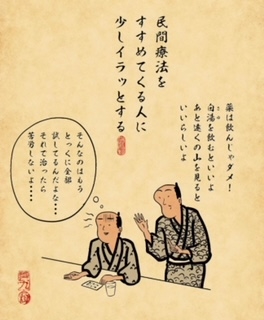 民間療法を
すすめてくる人に
少しイラッとする
薬は飲んじゃダメ！
白湯を飲むといいよ
さゆ
あと遠くの山を見ると
いいらしいよ
そんなのはもう
とっくに全部
試してるんだよな…
それで治ったら
苦労しないよ……